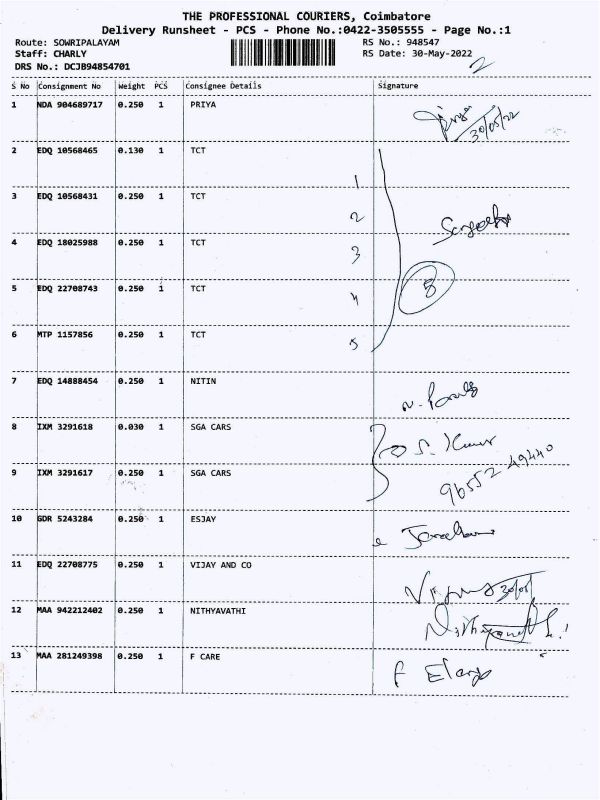 THE PROFESSIONAL COURIERS, Coimbatore
Delivery Runsheet - PCS - Phone No.:0422-3505555 - Page No.:1
Route: SOWRIPALAYAM RS No.: 948547
Staff: CHARLY RS Date: 30-May-2022
DRS No.: DCJB94854701 2
S No Consignment No Weight PCS Consignee Details Signature
1 NDA 904689717 0.250 1 PRIYA
30/05/22
2 EDQ 10568465 0.130 1 TCT
1
3 EDQ 10568431 0.250 1 TCT
2
4 EDQ 18025988 0.250 1 TCT
3
5 EDQ 22708743 0.250 1 TCT
4
6 MTP 1157856 0.250 1 TCT
5
7 EDQ 14888454 0.250 1 NITIN
8 IXM 3291618 0.030 1 SGA CARS
S. Kumar
9 IXM 3291617 0.250 1 SGA CARS
96552 49440
10 GDR 5243284 0.250 1 ESJAY
11 EDQ 22708775 0.250 1 VIJAY AND CO
12 MAA 942212402 0.250 1 NITHYAVATHI
13 MAA 281249398 0.250 1 F CARE